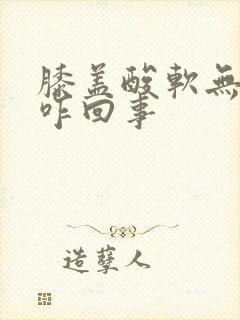 膝盖酸軟無
咋回事
造孽人